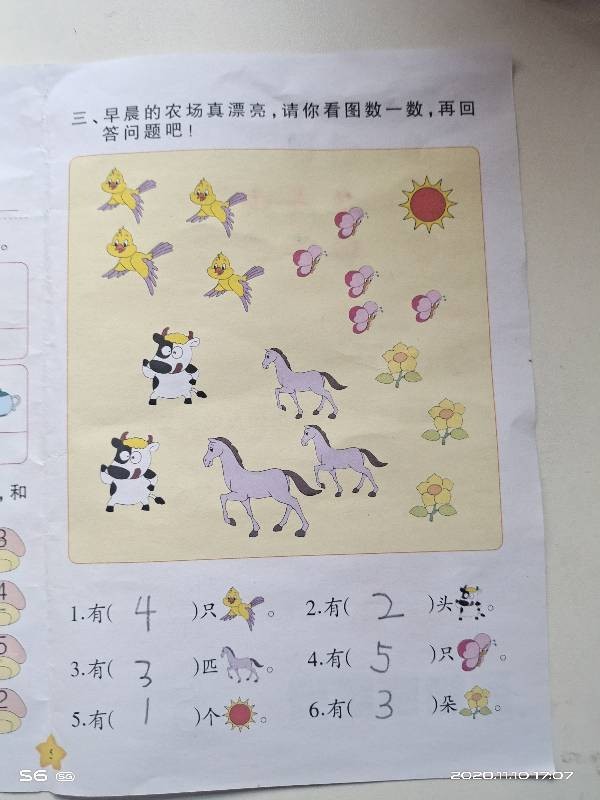 三、早晨的农场真漂亮,请你看图数一数,再回
答问题吧!
。
,和
3
4
5
2
1.有( 4 )只。
2.有( 2 )头。
3.有( 3 )匹。
4.有( 5 )只。
5.有( 1 )个。
6.有( 3 )朵。
S6 5G
2020.11.10 17:07